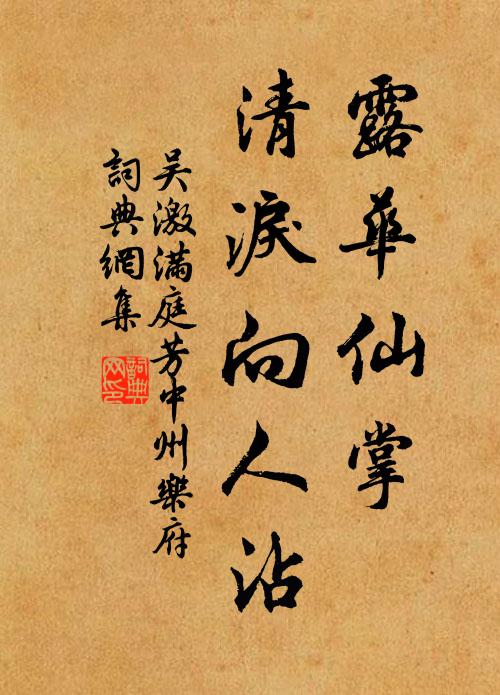 露華仙掌
清淚向人沾
吴激滿庭芳中州樂府
詞典網集
詞典
网印